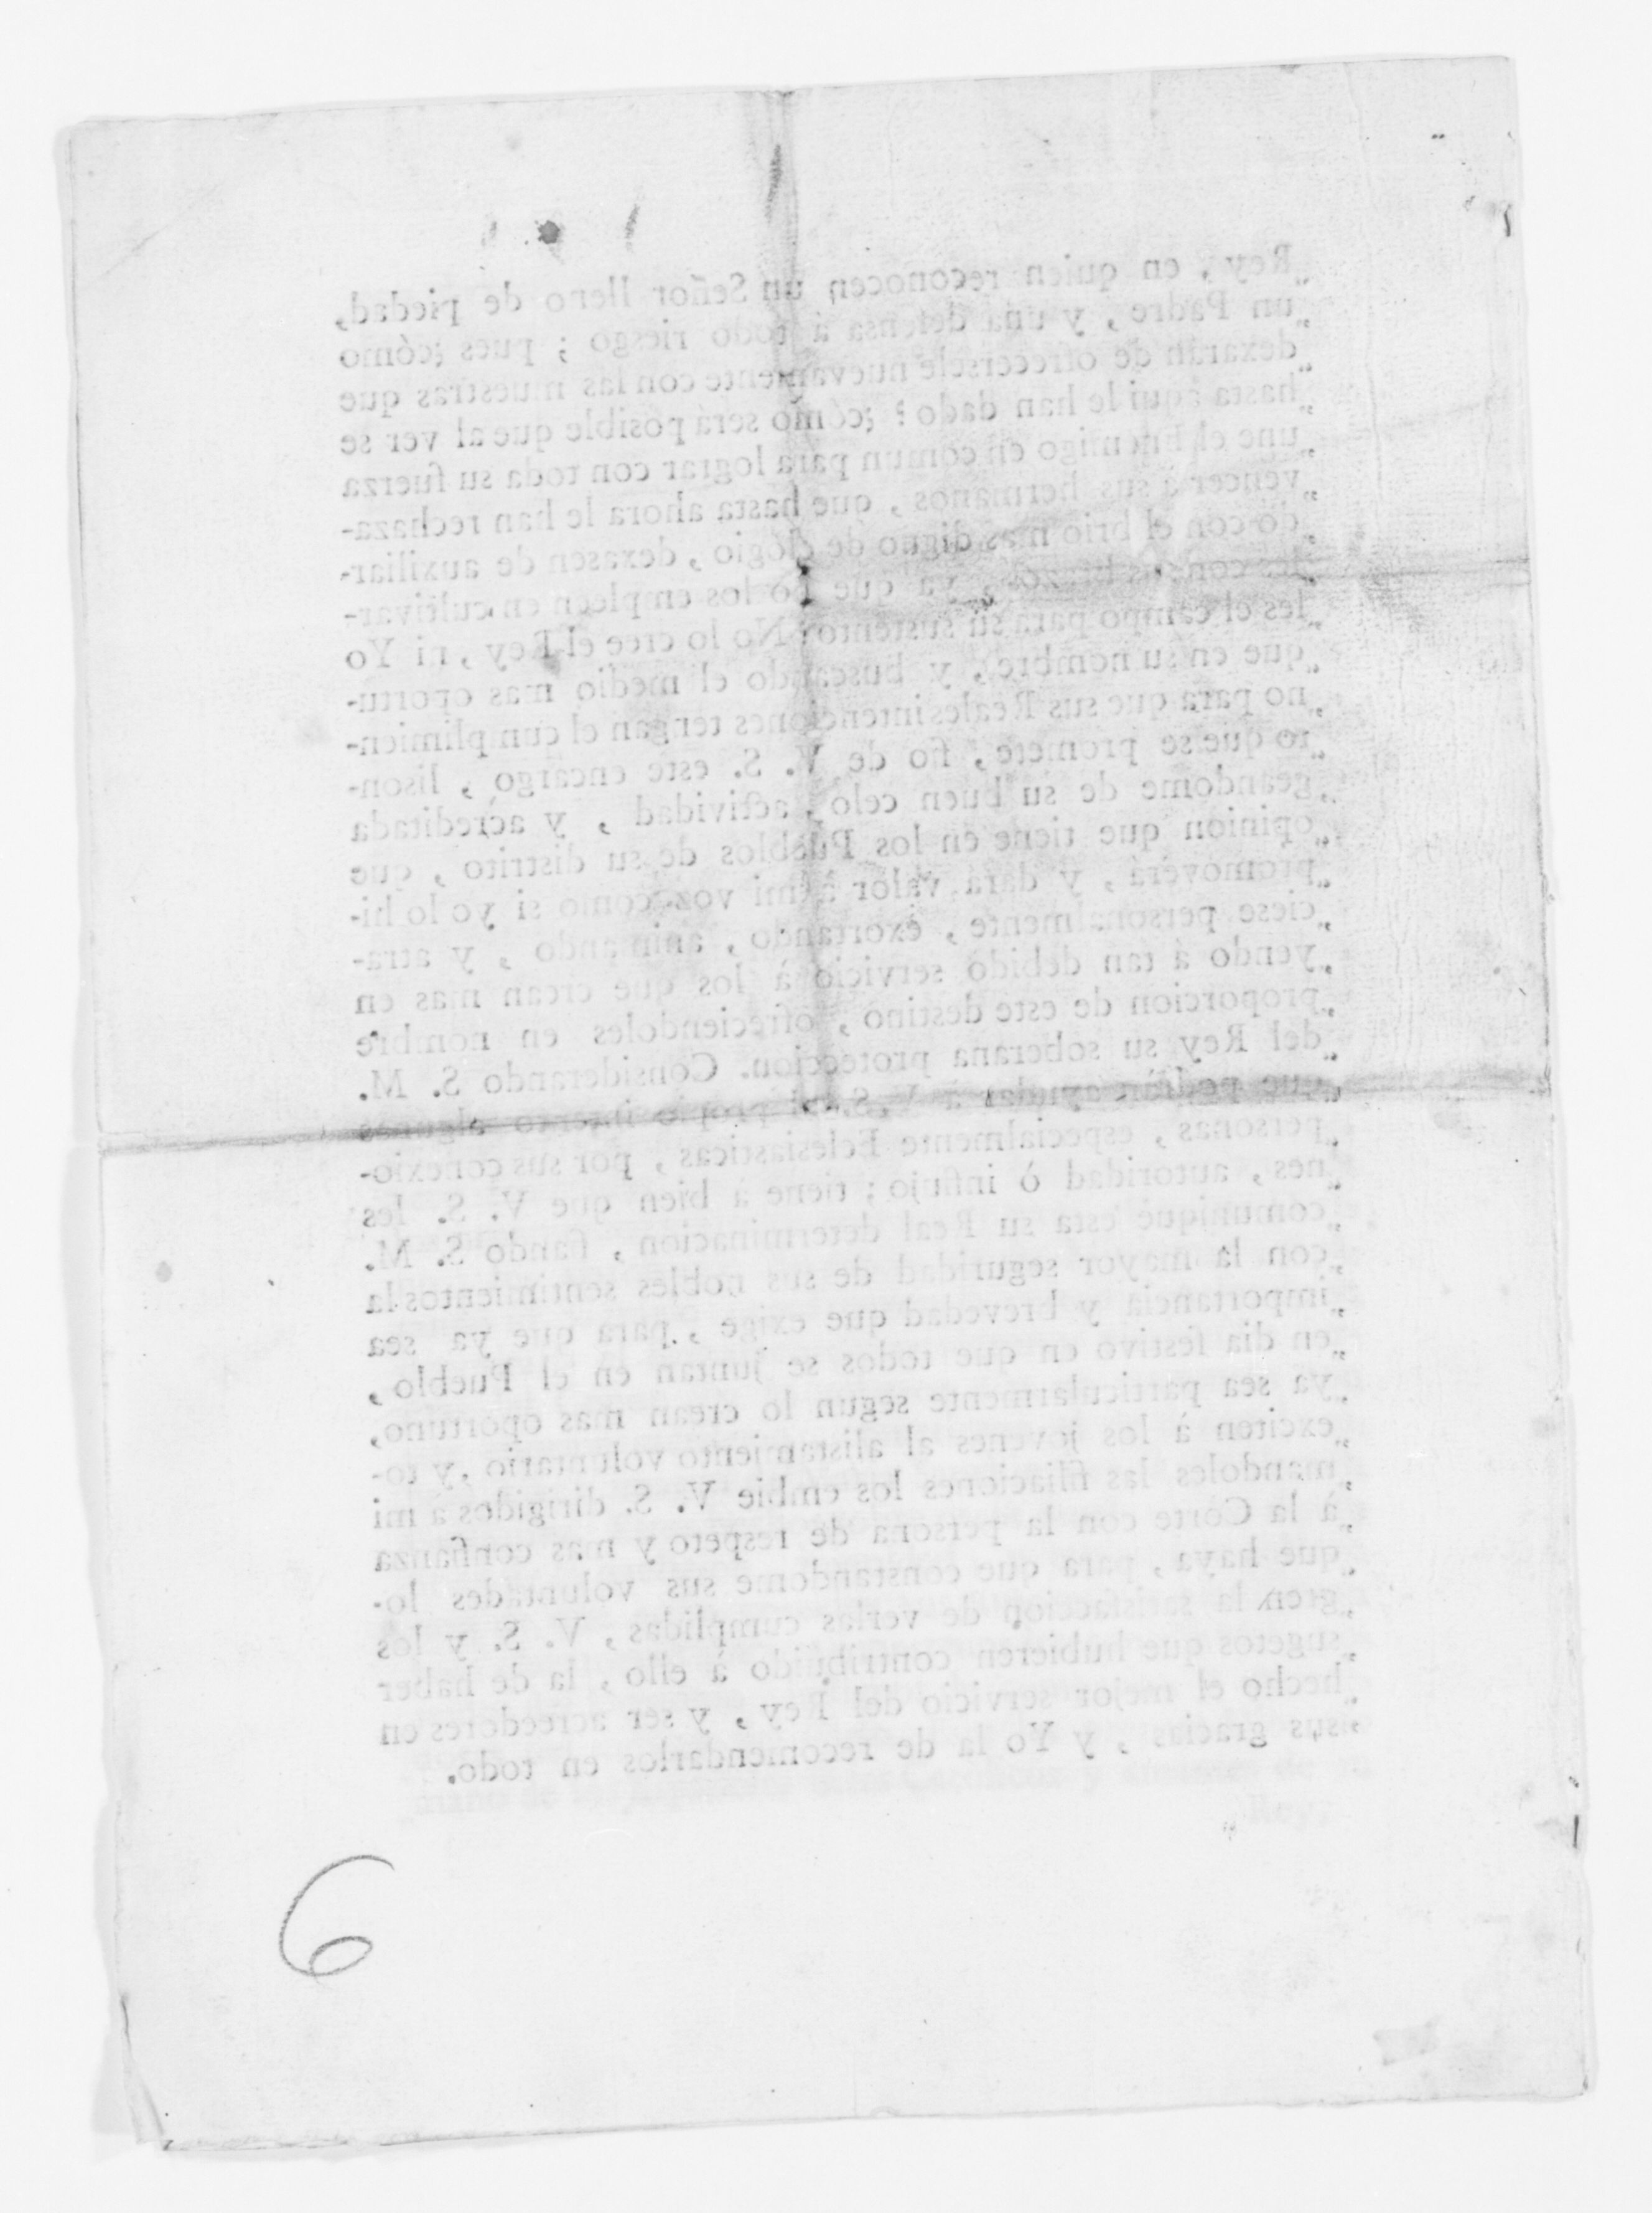 „Rey, en quien reconocen un Señor lleno de piedad,
„un Padre, y una defensa á todo riesgo; pues ¿cómo
„dexarán de ofrecersele nuevamente con las muestras que
„hasta aqui le han dado? ¿cómo será posible que al ver se
„une el Enemigo en comun para lograr con toda su fuerza
„vencer á sus hermanos, que hasta ahora le han rechaza-
„do con el brio mas digno de elogio, dexasen de auxiliar-
„les con sus brazos, ya que no los empleen en cultivar-
„les el campo para su sustento? No lo cree el Rey, ni Yo
„que en su nombre, y buscando el medio mas oportu-
„no para que sus Reales intenciones tengan el cumplimien-
„to que se promete, fio de V. S. este encargo, lison-
„geandome de su buen celo, actividad, y acreditada
„opinion que tiene en los Pueblos de su distrito, que
„promoverá, y dará valor á mi voz como si yo lo hi-
„ciese personalmente, exortando, animando, y atra-
„yendo á tan debido servicio à los que crean mas en
„proporcion de este destino, ofreciendoles en nombre
„del Rey su soberana proteccion. Considerando S. M.
„que podrán ayudar à V. S. al propio intento algunas
„personas, especialmente Eclesiasticas, por sus conexio-
„nes, autoridad ò influjo; tiene à bien que V. S. les
„comunique esta su Real determinacion, fiando S. M.
„con la mayor seguridad de sus nobles sentimientos la
„importancia y brevedad que exige, para que ya sea
„en dia festivo en que todos se juntan en el Pueblo,
„ya sea particularmente segun lo crean mas oportuno,
„exciten à los jovenes al alistamiento voluntario, y to-
„mandoles las filiaciones los embie V. S. dirigidos a mi
„à la Corte con la persona de respeto y mas confianza
„que haya, para que constandome sus voluntades lo-
„gren la satisfaccion de verlas cumplidas, V. S. y los
„sugetos que hubieren contribuido à ello, la de haber
„hecho el mejor servicio del Rey, y ser acreedores en
„sus gracias, y Yo la de recomendarlos en todo.
„Rey,
6